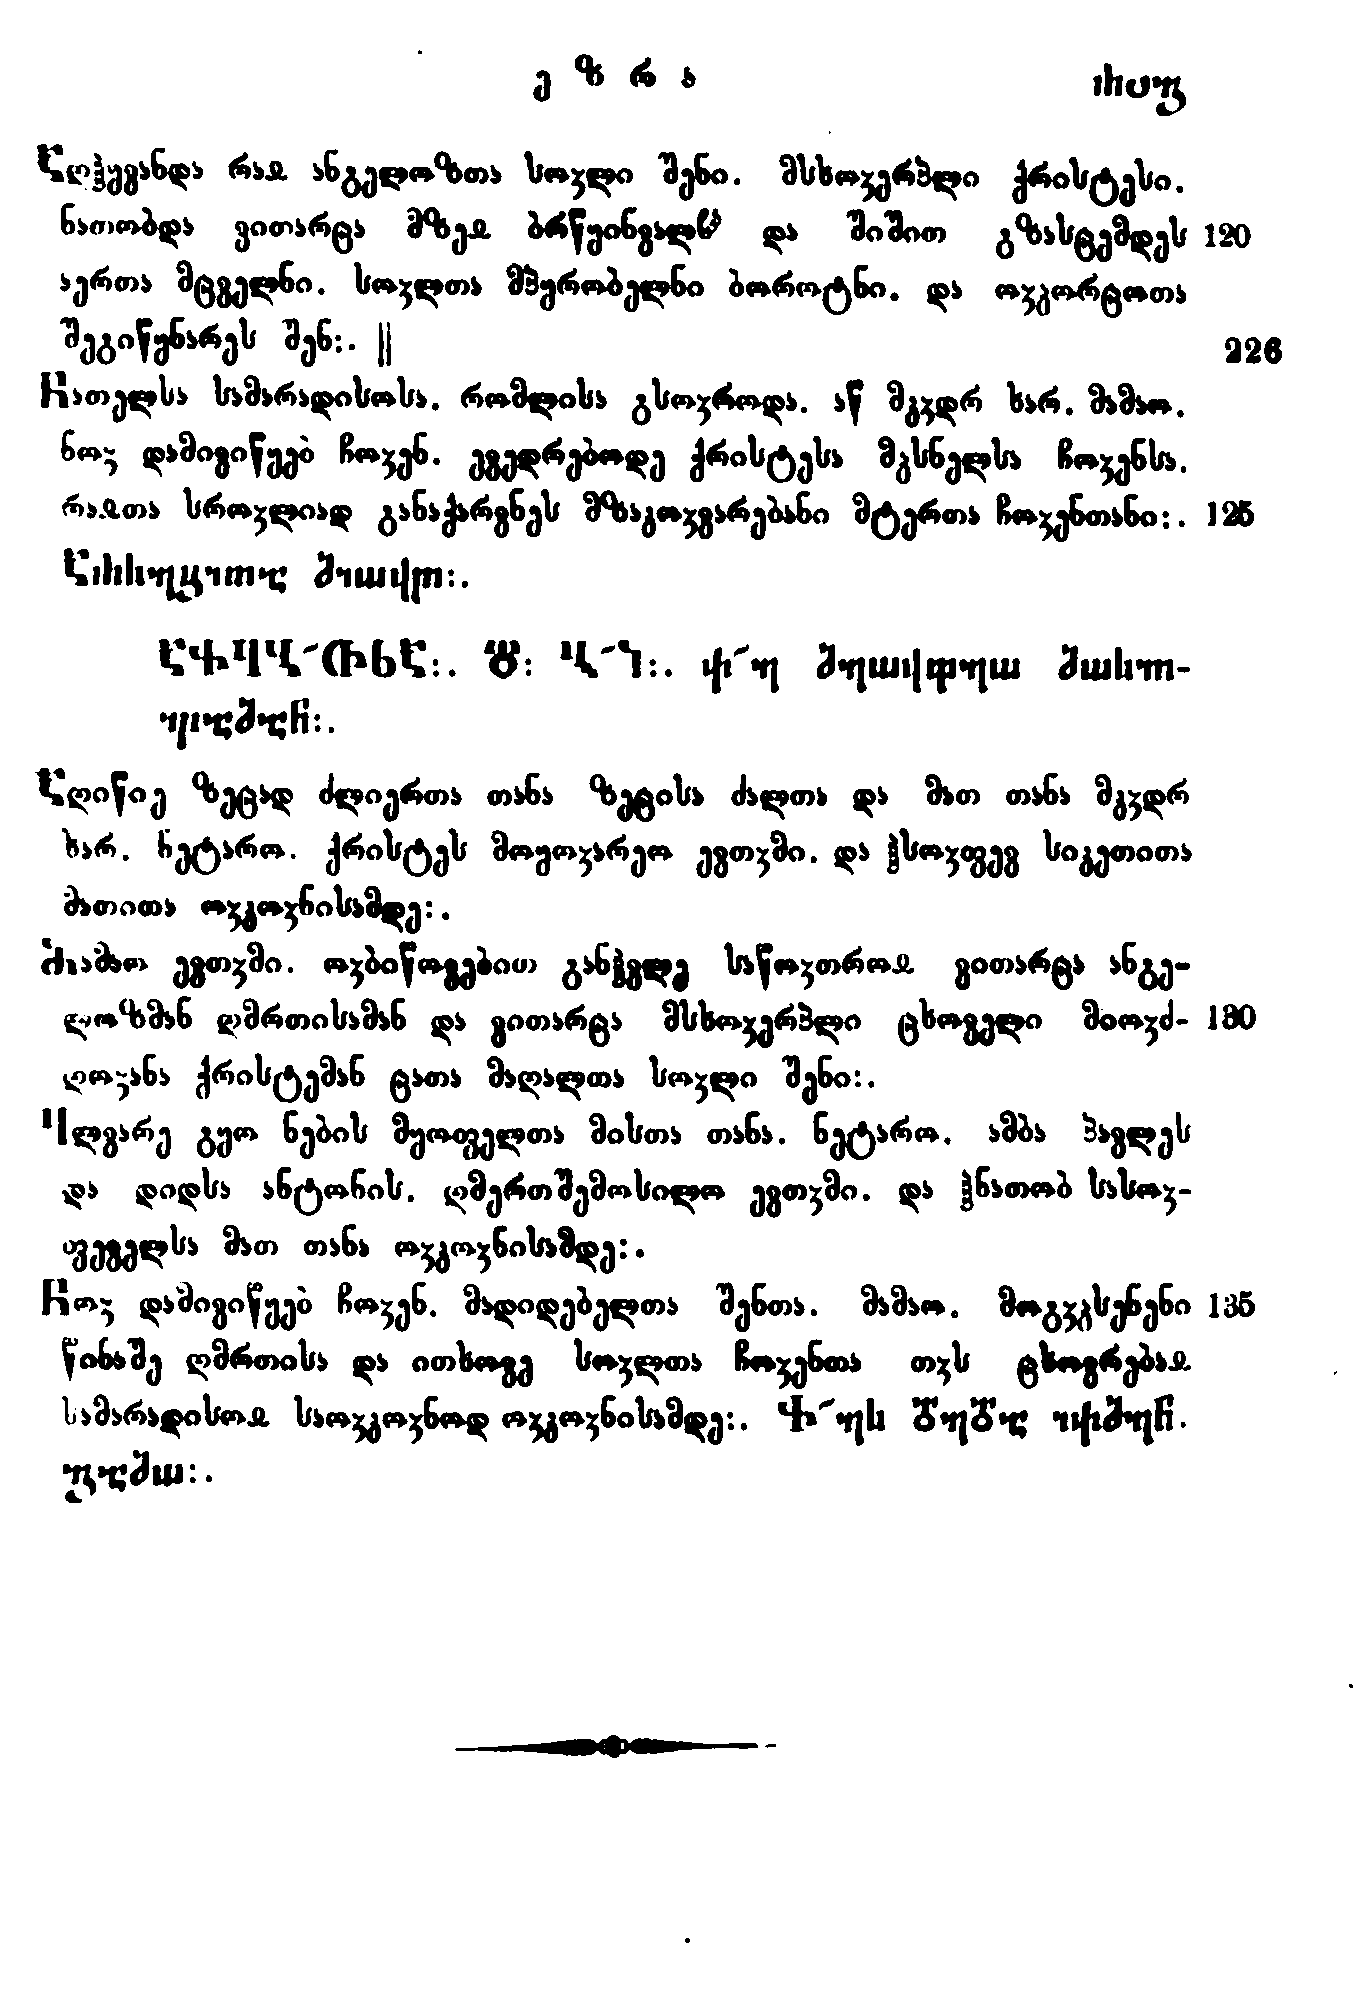 ე ზ რ ა
Ⴀღჰყვანდა რაჲ ანგელოზთა სოჳლი შენი. მსხოჳერპლი ქრისტესი.
ნათობდა ვითარცა მზეჲ ბრწყინვალჱ და შიშით გზასცემდეს 120
აერთა მცველნი. სოჳლთა მპყრობელნი ბოროტნი. და ოჳჴორცოთა
შეგიწყნარეს შენ:. || 226
Ⴌათელსა სამარადისოსა. რომლისა გსოჳროდა. აწ მკჳდრ ხარ. მამაო.
ნოჳ დამივიწყებ ჩოჳენ. ევედრებოდე ქრისტესა მჴსნელსა ჩოჳენსა.
რაჲთა სროჳლიად განაქარვნეს მზაკოჳვარებანი მტერთა ჩოჳენთანი:. 125
Ⴀღიწიე ზეცად ძლიერთა თანა ზეცისა ძალთა და მათ თანა მკჳდრ
ხარ. ნეტარო. ქრისტეს მოყოჳარეო ევთჳმი. და ჰსოჳფევ სიკეთითა
მათითა ოჳკოჳნისამდე:.
Ⴋამაო ევთჳმი. ოჳბიწოვებით განჰვლე საწოჳთროჲ ვითარცა ანგე-
ლოზმან ღმრთისამან და ვითარცა მსხოჳერპლი ცხოველი მიოჳძ- 130
ღოჳანა ქრისტემან ცათა მაღალთა სოჳლი შენი:.
Ⴄლვარე გყო ნების მყოფელთა მისთა თანა. ნეტარო. ამბა პავლეს
და დიდსა ანტონის. ღმერთშემოსილო ევთჳმი. და ჰნათობ სასოჳ-
ფეველსა მათ თანა ოჳკოჳნისამდე:.
Ⴌოჳ დამივიწყებ ჩოჳენ. მადიდებელთა შენთა. მამაო. მოგჳჴსენენი 135
წინაშე ღმრთისა და ითხოვე სოჳლთა ჩოჳენთა თჳს ცხოვრებაჲ
სამარადისოჲ საოჳკოჳნოდ ოჳკოჳნისამდე:.